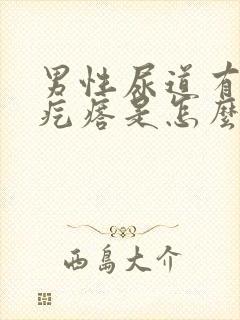 男性尿道有
疙瘩是怎麼
西島大介